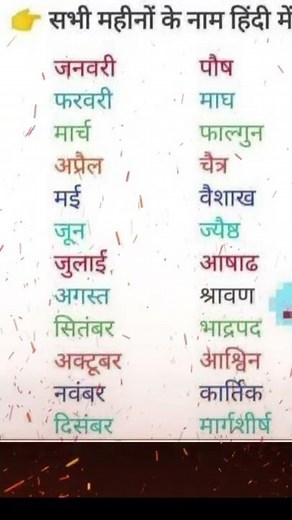 👉 सभी महीनों के नाम हिंदी में
जनवरी पौष
फरवरी माघ
मार्च फाल्गुन
अप्रैल चैत्र
मई वैशाख
जून ज्यैष्ठ
जुलाई आषाढ
अगस्त श्रावण
सितंबर भाद्रपद
अक्टूबर आश्विन
नवंबर कार्तिक
दिसंबर मार्गशीर्ष